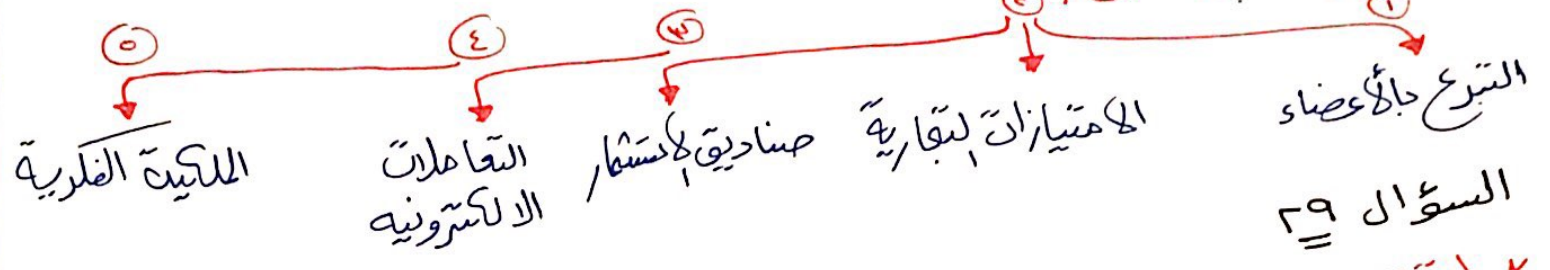 ١ ٢ ٣ ٤ ٥
التبرع بالأعضاء
الامتيازات التجارية
صناديق الاستثمار
التعاملات
الالكترونيه
الملكية الفكرية
السؤال ٢٩